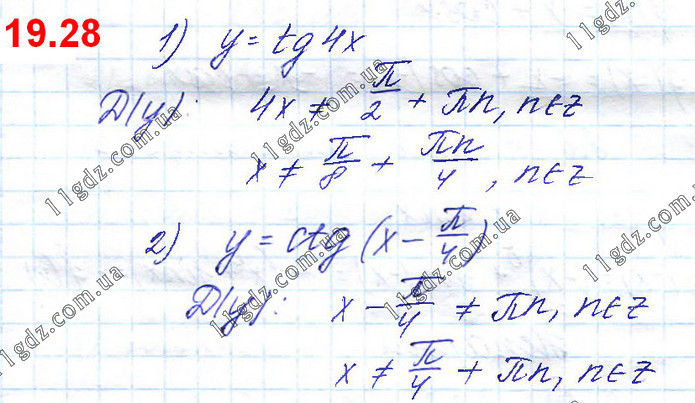 19.28
1) y = tg 4x
D(y): 4x ≠ π/2 + πn, n∈z
x ≠ π/8 + πn/4, n∈z
2) y = ctg (x − π/4)
D(y): x − π/4 ≠ πn, n∈z
x ≠ π/4 + πn, n∈z
11gdz.com.ua
11gdz.com.ua
11gdz.com.ua
11gdz.com.ua
11gdz.com.ua
11gdz.com.ua